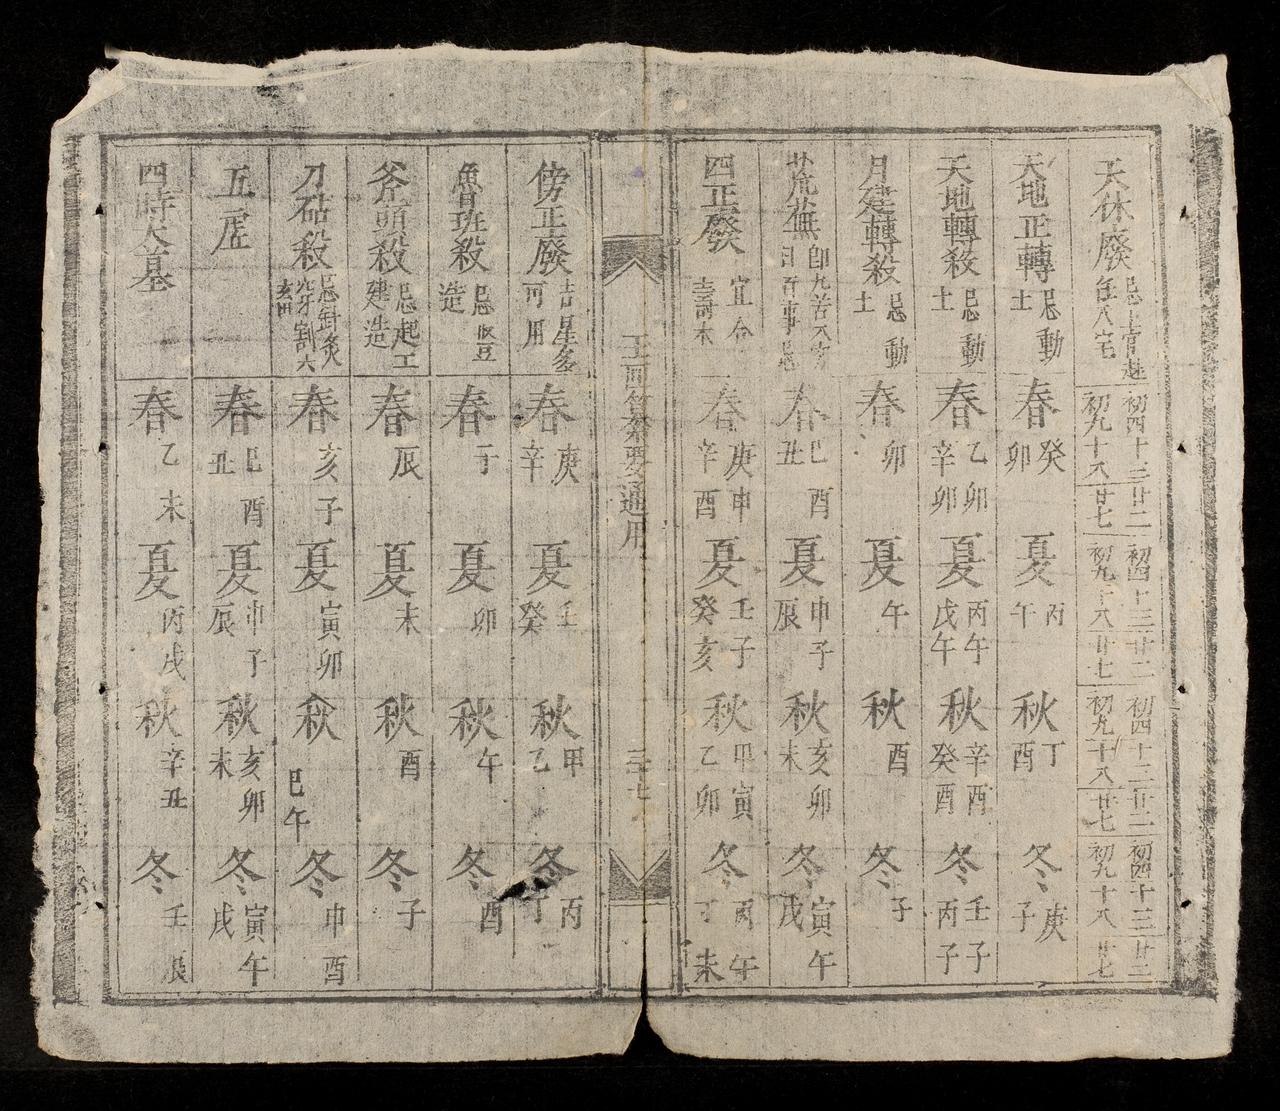 天休廢 忌上官赴任入宅 初四十三廿二 初九十八廿七 初四十三廿二 初九十八廿七 初四十三廿二 初九十八廿七 初四十三廿二 初九十八廿七
天地正轉 忌動土 春 癸卯 夏 丙午 秋 丁酉 冬 庚子
天地轉殺 忌動土 春 乙卯辛卯 夏 丙午戊午 秋 辛酉癸酉 冬 壬子丙子
月建轉殺 忌動土 春 卯 夏 午 秋 酉 冬 子
荒蕪 即九苦八穷日百事忌 春 巳酉丑 夏 申子辰 秋 亥卯未 冬 寅午戌
四正廢 宜合壽木 春 庚申辛酉 夏 壬子癸亥 秋 甲寅乙卯 冬 丙午丁未
纂要通用 三十七
傍正廢 吉星多可用 春 庚辛 夏 壬癸 秋 甲乙 冬 丙丁
魯班殺 忌竪造 春 子 夏 卯 秋 午 冬 酉
斧頭殺 忌起工建造 春 辰 夏 未 秋 酉 冬 子
刀砧殺 忌針灸穿割六畜 春 亥子 夏 寅卯 秋 巳午 冬 申酉
五虛 春 巳酉丑 夏 申子辰 秋 亥卯未 冬 寅午戌
四時大墓 春 乙未 夏 丙戌 秋 辛丑 冬 壬辰